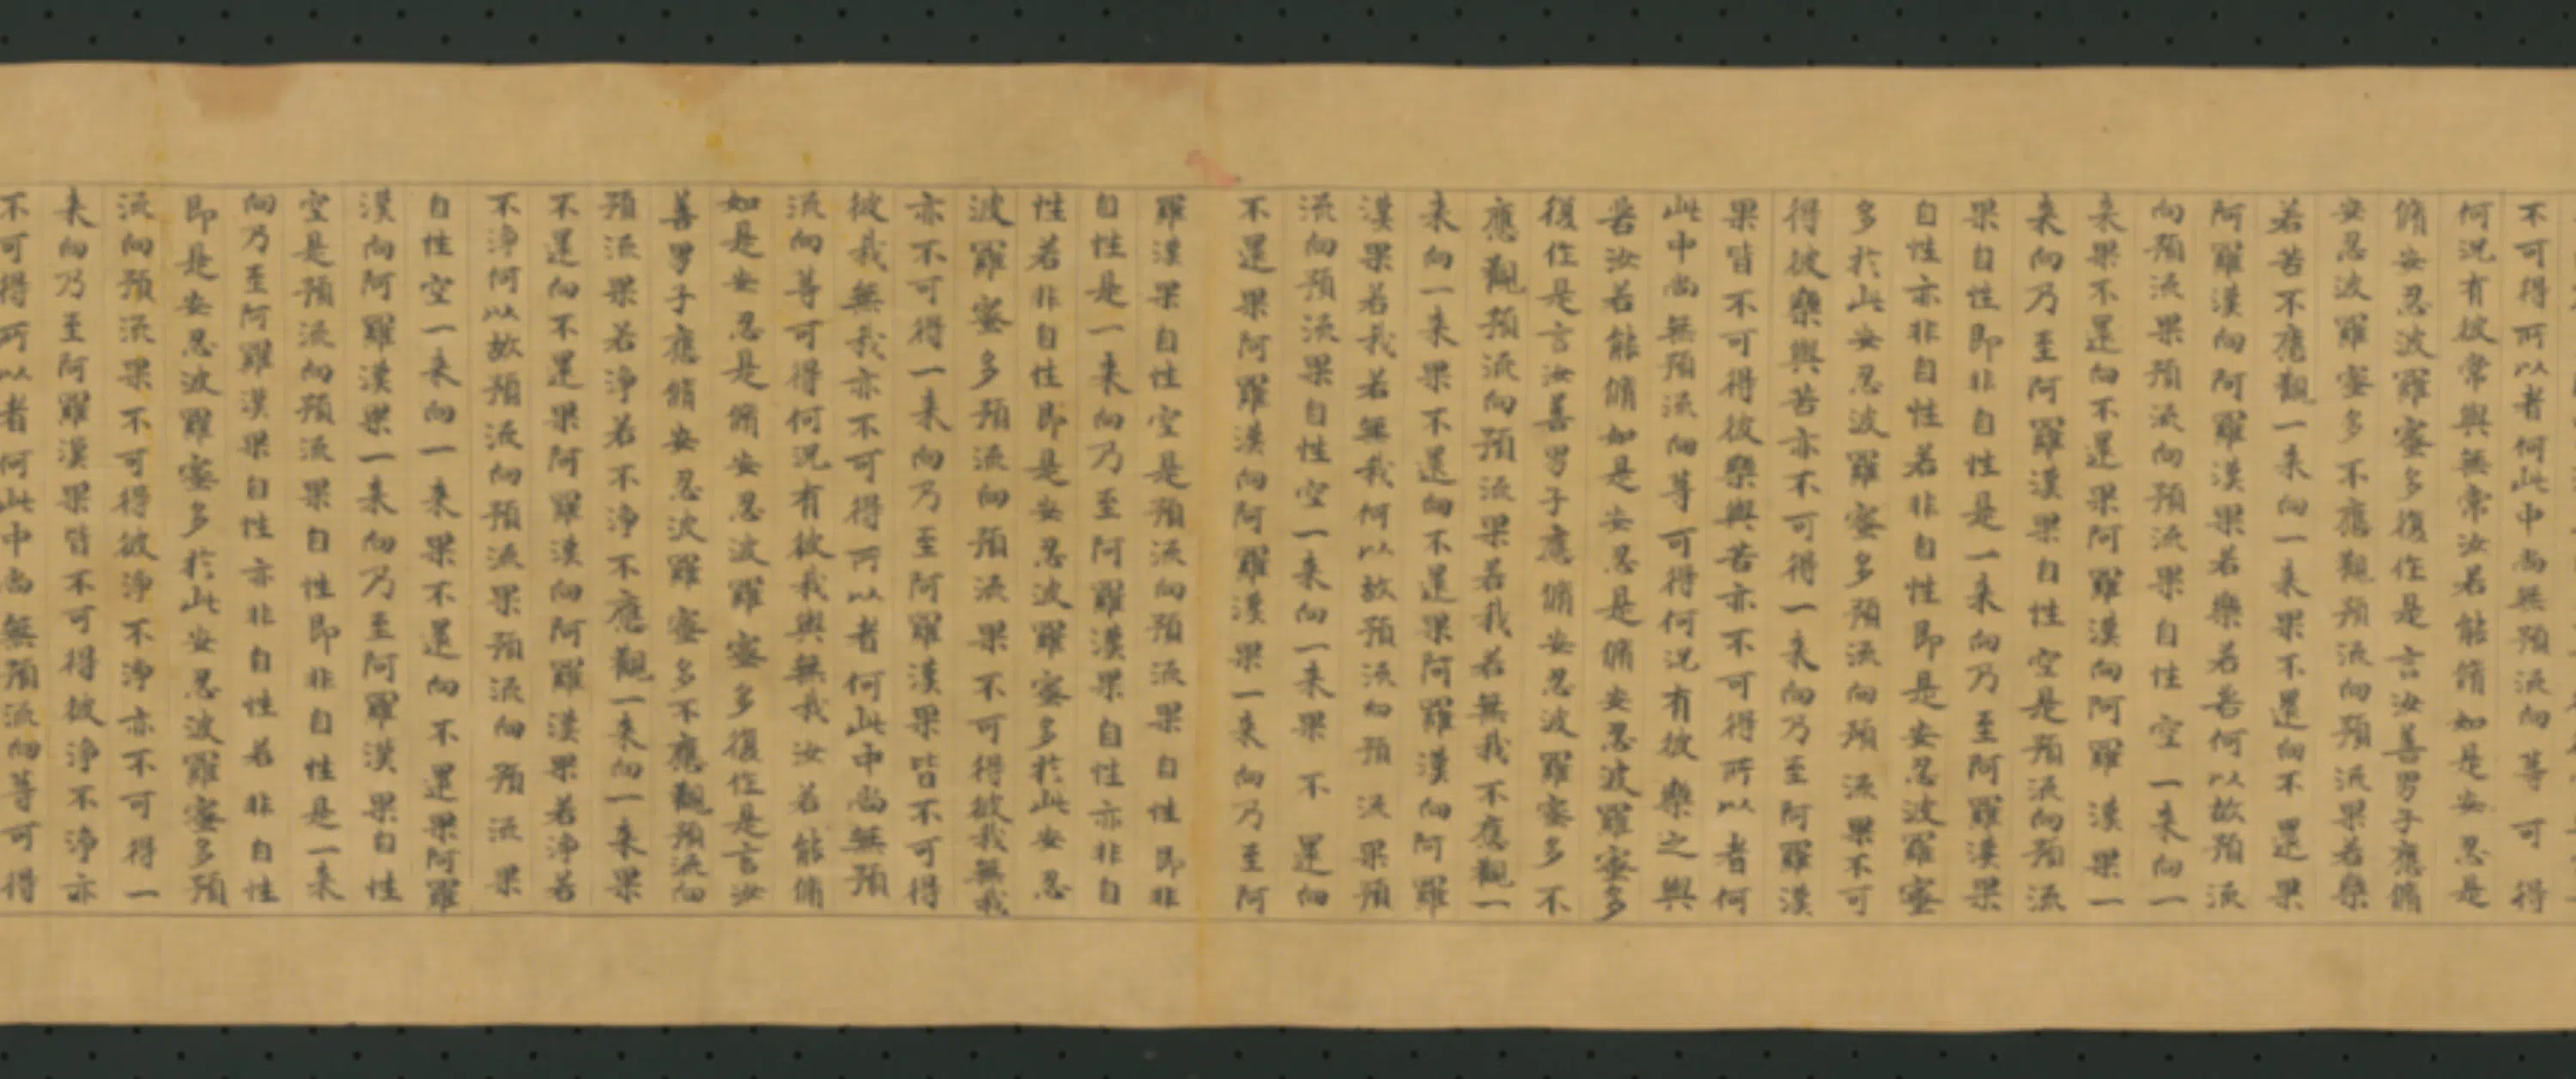 不可得所以者何此中尚無預流向等可得
何況有彼常與無常汝若能脩如是安忍是
脩安忍波羅蜜多復作是言汝善男子應脩
安忍波羅蜜多不應觀預流向預流果若樂
若苦不應觀一来向一来果不還向不還果
阿羅漢向阿羅漢果若樂若苦何以故預流
向預流果預流向預流果自性空一来向一
来果不還向不還果阿羅漢向阿羅漢果一
来向乃至阿羅漢果自性空是預流向預流
果自性即非自性是一来向乃至阿羅漢果
自性亦非自性若非自性即是安忍波羅蜜
多於此安忍波羅蜜多預流向預流果不可
得彼樂與苦亦不可得一来向乃至阿羅漢
果皆不可得彼樂與苦亦不可得所以者何
此中尚無預流向等可得何況有彼樂之與
苦汝若能脩如是安忍是脩安忍波羅蜜多
復作是言汝善男子應脩安忍波羅蜜多不
應觀預流向預流果若我若無我不應觀一
来向一来果不還向不還果阿羅漢向阿羅
漢果若我若無我何以故預流向預流果預
流向預流果自性空一来向一来果不還向
不還果阿羅漢向阿羅漢果一来向乃至阿
羅漢果自性空是預流向預流果自性即非
自性是一来向乃至阿羅漢果自性亦非自
性若非自性即是安忍波羅蜜多於此安忍
波羅蜜多預流向預流果不可得彼我無我
亦不可得一来向乃至阿羅漢果皆不可得
彼我無我亦不可得所以者何此中尚無預
流向等可得何況有彼我與無我汝若能脩
如是安忍是脩安忍波羅蜜多復作是言汝
善男子應脩安忍波羅蜜多不應觀預流向
預流果若淨若不淨不應觀一来向一来果
不還向不還果阿羅漢向阿羅漢果若淨若
不淨何以故預流向預流果預流向預流果
自性空一来向一来果不還向不還果阿羅
漢向阿羅漢果一来向乃至阿羅漢果自性
空是預流向預流果自性即非自性是一来
向乃至阿羅漢果自性亦非自性若非自性
即是安忍波羅蜜多於此安忍波羅蜜多預
流向預流果不可得彼淨不淨亦不可得一
来向乃至阿羅漢果皆不可得彼淨不淨亦
不可得所以者何此中尚無預流向等可得